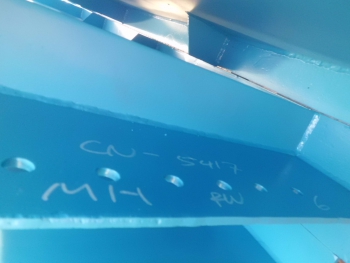 CN-5417
MH RW 6